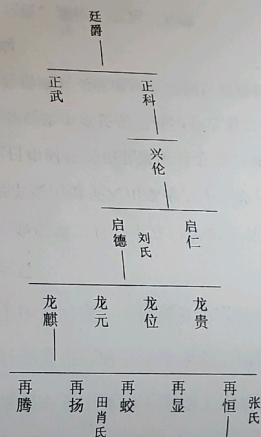 廷爵
正武
正科
兴伦
启德
刘氏
启仁
龙麒
龙元
龙位
龙贵
再腾
再扬
田肖氏
再蛟
再显
再恒
张氏